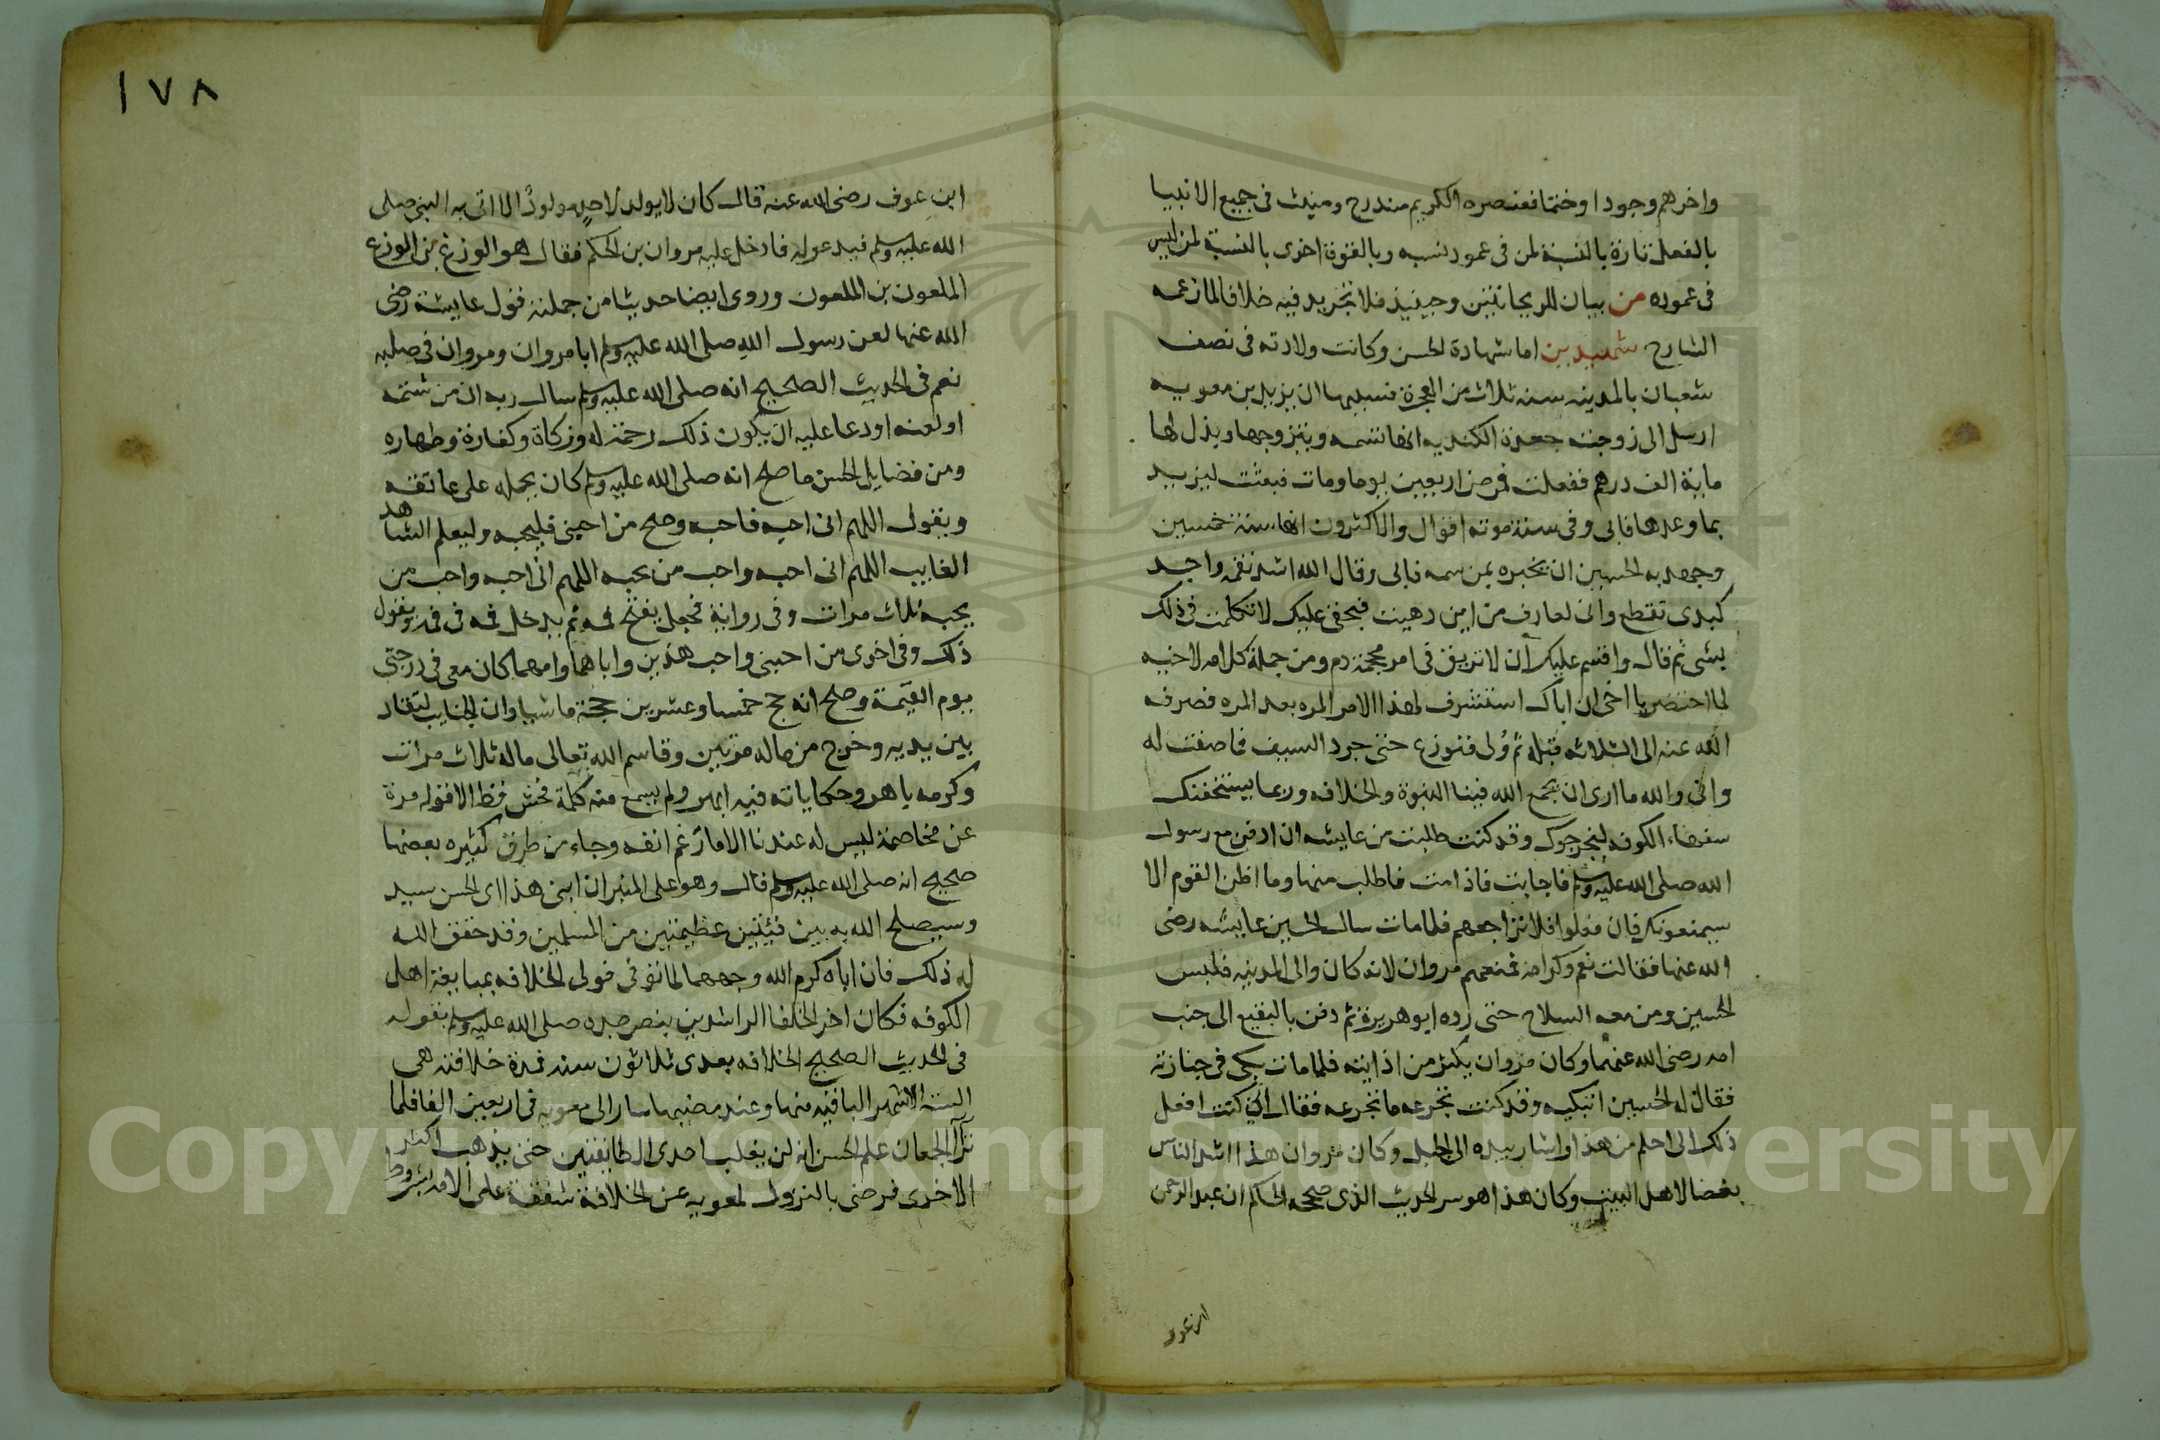 واخرهم وجودا وختما فعنصره الكريم مندرج ومنبث في جميع الانبيا
بالفعل تارة بالنسبة لمن في عمود نسبه وبالقوة اخرى بالنسبة لمن ليس
في عموده من بيان للريحانتين وحينيذ فلا تجريد فيه خلافا لما زعمه
الشارح شهيدين اما شهادة الحسن وكانت ولادته في نصف
شعبان بالمدينه سنه ثلاث من الهجرة فسببها ان يزيد بن معويه
ارسل الى زوجته جعدة الكنديه انها تسمه ويتزوجها وبذل لها
ماية الف درهم ففعلت فمرض اربعين يوما ومات فبعثت ليزيد
بما وعدها فابى وفي سنة موته اقوال والاكثرون انها سنة خمسين
وجهد به الحسين ان يخبره بمن سمه فابى وقال الله اشد نقمه واجد
كبدي تقطع واني لعارف من اين دهيت فبحقي عليك لا تكلمت في ذلك
بشي ثم قال واقسم عليك ان لا تريق في امري محجمة دم ومن جملة كلامه لاخيه
لما احتضر يا اخي ان اباك استشرف لهذا الامر المره بعد المره فصرفه
الله عنه الى الثلاثه قبله ثم ولى فنوزع حتى جرد السيف فما صفت له
واني والله ما ارى ان يجمع الله فينا النبوة والخلافه وربما يستخفنك
سفهاء الكوفه ليخرجوك وقد كنت طلبت من عايشه ان ادفن مع رسول
الله صلى الله عليه وسلم فاجابت فاذا مت فاطلب منها وما اظن القوم الا
سيمنعونك فان فعلوا فلا تراجعهم فلما مات سال الحسين عايشه رضي
الله عنها فقالت نعم وكرامه فمنعهم مروان لانه كان والي المدينه فلبس
الحسين ومن معه السلاح حتى رده ابو هريرة ثم دفن بالبقيع الى جنب
امه رضي الله عنهما وكان مروان يكثر من اذايته فلما مات بكى في جنازته
فقال له الحسين اتبكيه وقد كنت تجرعه ما تجرعه فقال اني كنت افعل
ذلك الى احلم من هذا واشار بيده الى الجبل وكان مروان هذا اشد الناس
بغضا لاهل البيت وكان هذا هو سر الحديث الذي صححه الحاكم ان عبد الرحمن
ابن عوف
١٧٨
ابن عوف رضى الله عنه قال كان لا يولد لاحد مولود الا اتى به النبي صلى
الله عليه وسلم فيدعو له فادخل عليه مروان بن الحكم فقال هو الوزغ بن الوزغ
الملعون بن الملعون وروى ايضا حديثا من جملته قول عايشة رضى
الله عنها لعن رسول الله صلى الله عليه وسلم ابا مروان ومروان في صلبه
نعم في الحديث الصحيح انه صلى الله عليه وسلم سال ربه ان من شتمه
او لعنه او دعا عليه ان يكون ذلك رحمة له وزكاة وكفارة وطهاره
ومن فضايل الحسن ما صح انه صلى الله عليه وسلم كان يحمله على عاتقه
ويقول اللهم اني احبه فاحبه وصح من احبني فليحبه وليعلم الشاهد
الغايب اللهم اني احبه واحب من يحبه اللهم اني احبه واحب من
يحبه ثلاث مرات وفي رواية فجعل يفتح فمه ثم يدخل فمه في فمه ويقول
ذلك وفي اخرى من احبني واحب هذين واباهما وامهما كان معي في درجتي
يوم القيمة وصح انه حج خمسا وعشرين حجة ماشيا وان الجنايب لتقاد
بين يديه وخرج من ماله مرتين وقاسم الله تعالى ماله ثلاث مرات
وكرمه باهر وحكاياته فيه ابهر ولم يسمع منه كلمة فحش قط الا قوله مرة
عن مخاصمه ليس له عندنا الا ما رغم انفه وجاء من طرق كثيره بعضها
صحيح انه صلى الله عليه وسلم قال وهو على المنبر ان ابني هذا اي الحسن سيد
وسيصلح الله به بين فئتين عظيمتين من المسلمين وقد حقق الله
له ذلك فان اباه كرم الله وجهه لما توفي تولى الخلافه بمبايعة اهل
الكوفه فكان اخر الخلفا الراشدين بنص جده صلى الله عليه وسلم بقوله
في الحديث الصحيح الخلافه بعدي ثلاثون سنه فمدة خلافته هي
الستة الاشهر الباقيه منها وعند مضيها سار الى معويه في اربعين الفا فلما
تراآ الجمعان علم الحسن انه لن يغلب احدى الطايفتين حتى يذهب اكثر
الاخرى فرضى بالنزول لمعويه عن الخلافة شفقة على الامه بشروط
Copyright © King Saud University